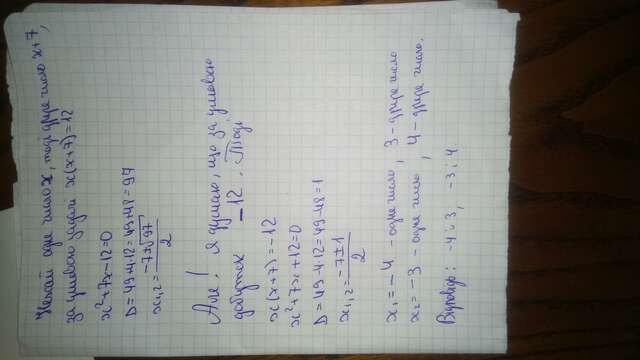 Нехай одне число x, тоді друге число x+7,
за умовою задачі x(x+7)=12
x²+7x-12=0
D=49+4·12=49+48=97
x₁,₂=(-7±√97)/2
Але! Я думаю, що за умовою
добуток -12. Тоді
x(x+7)=-12
x²+7x+12=0
D=49-4·12=49-48=1
x₁,₂=(-7±1)/2
x₁=-4 - одне число, 3 - друге число
x₂=-3 - одне число, 4 - друге число.
Відповідь: -4 і 3, -3 і 4